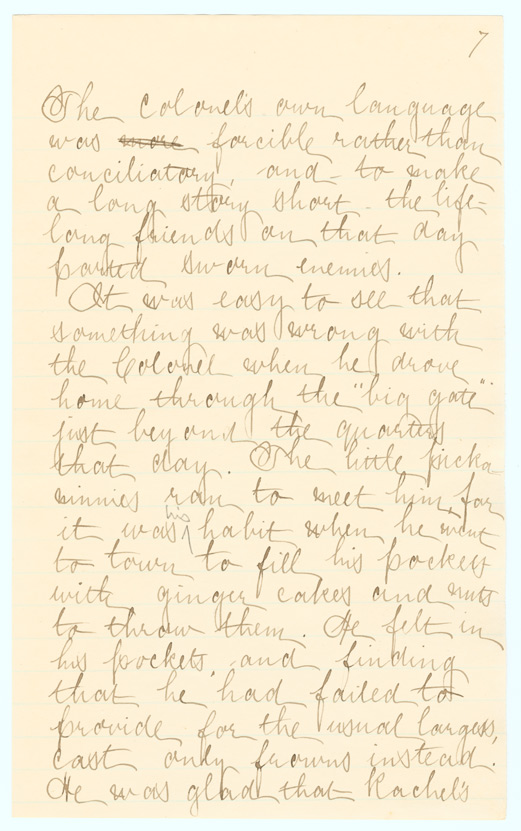 7
The colonel's own language
was more forcible rather than
conciliatory, and - to make
a long story short - the life-
long friends on that day
parted sworn enemies.
It was easy to see that
something was wrong with
the Colonel when he drove
home through the "big gate"
just beyond the quarters
that day. The little picka
ninnies ran to meet him, for
it was his habit when he went
to town to fill his pockets
with ginger cakes and nuts
to throw them. He felt in
his pockets, and finding
that he had failed to
provide for the usual largess,
cast only frowns instead.
He was glad that Rachel's